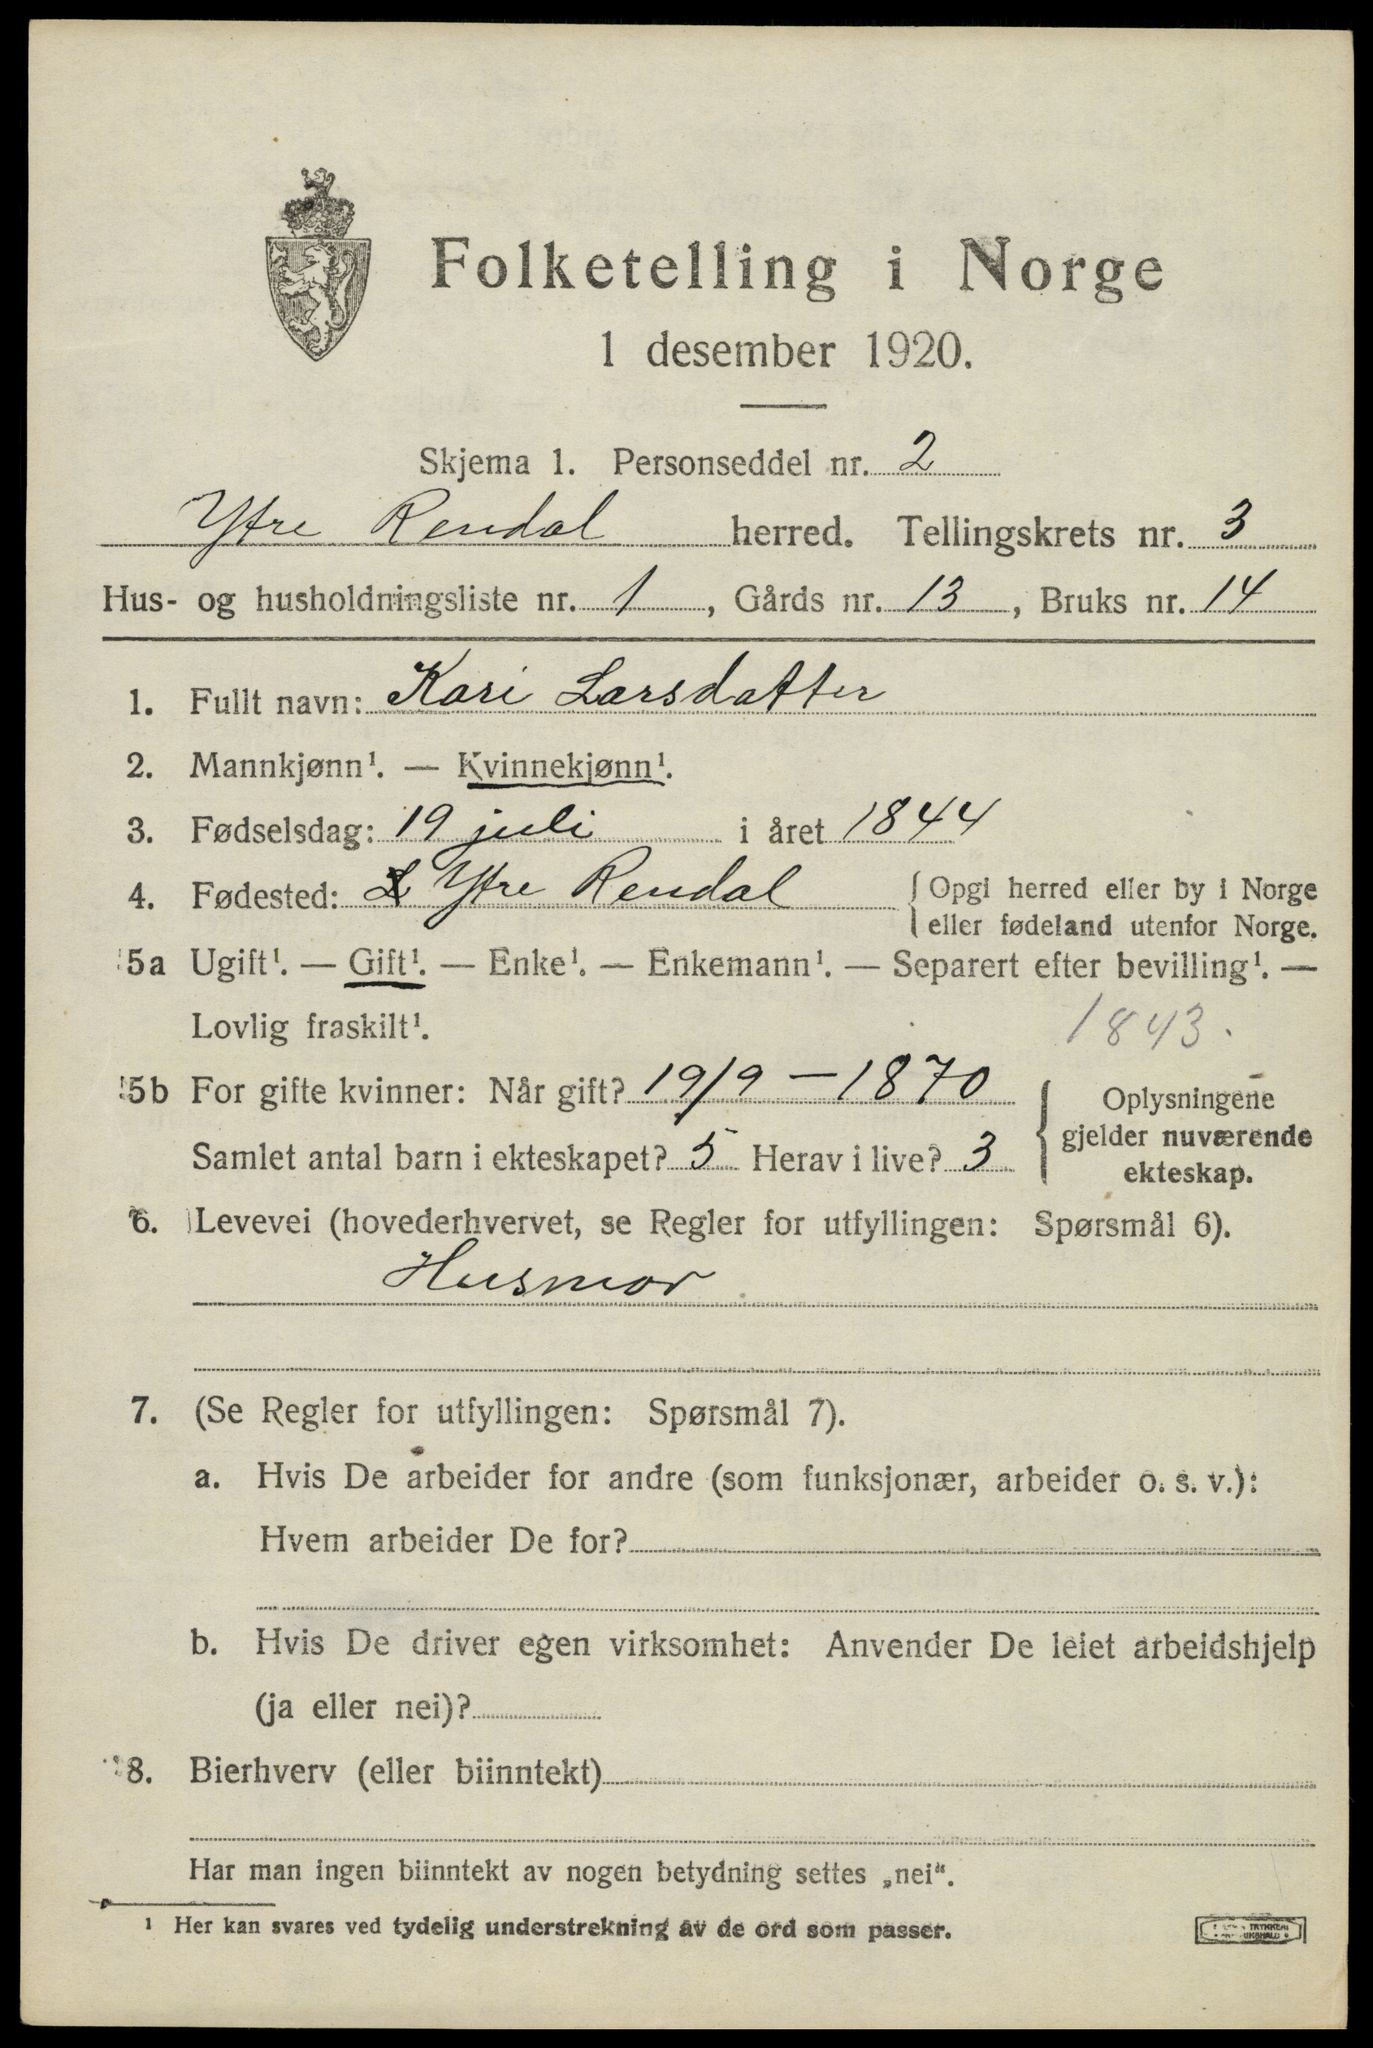 Folketelling i Norge
1 desember 1920.
Skjema 1. Personseddel nr. 2
Ytre Rendal herred. Tellingskrets nr. 3
Hus- og husholdningsliste nr. 1, Gårds nr. 13, Bruks nr. 14
1. Fullt navn: Kari Larsdatter
2. Mannkjønn¹. — Kvinnekjønn¹.
3. Fødselsdag: 19 juli i året 1844
4. Fødested: Ytre Rendal { Opgi herred eller by i Norge
eller fødeland utenfor Norge.
5a Ugift¹. — Gift¹. — Enke¹. — Enkemann¹. — Separert efter bevilling¹. —
Lovlig fraskilt¹. 1843.
5b For gifte kvinner: Når gift? 19/9 — 1870
Samlet antal barn i ekteskapet? 5 Herav i live? 3
{ Oplysningene
gjelder nuværende
ekteskap.
6. Levevei (hovederhvervet, se Regler for utfyllingen: Spørsmål 6).
Husmor
7. (Se Regler for utfyllingen: Spørsmål 7).
a. Hvis De arbeider for andre (som funksjonær, arbeider o. s. v.):
Hvem arbeider De for?
b. Hvis De driver egen virksomhet: Anvender De leiet arbeidshjelp
(ja eller nei)?
8. Bierhverv (eller biinntekt)
Har man ingen biinntekt av nogen betydning settes „nei“.
¹ Her kan svares ved tydelig understrekning av de ord som passer.